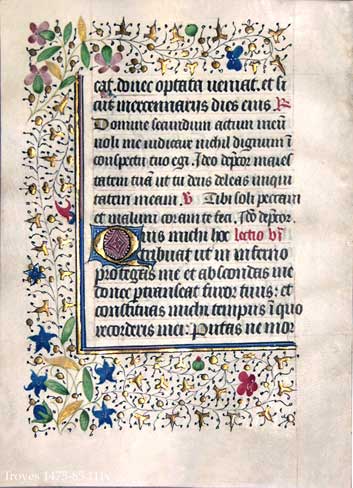 cat. donec optata veniat. et si
cut mercennarij dies eius. R
Domine secundum actum meū
noli me iudicare nichil dignum ī
conspectu tuo egi. Ideo dep̄cor maies
tatem tuā ut tu deus deleas iniqui
tatem meam. V Tibi soli peccavi
et malum coram te feci. Ideo dep̄cor.
Quis michi hoc lectio
tribuat ut in inferno
protegas me et abscondas me
donec ptranseat furor tuus: et
constituas michi tempus ī quo
recorderis mei: Putas ne mor
Troyes 1475-85